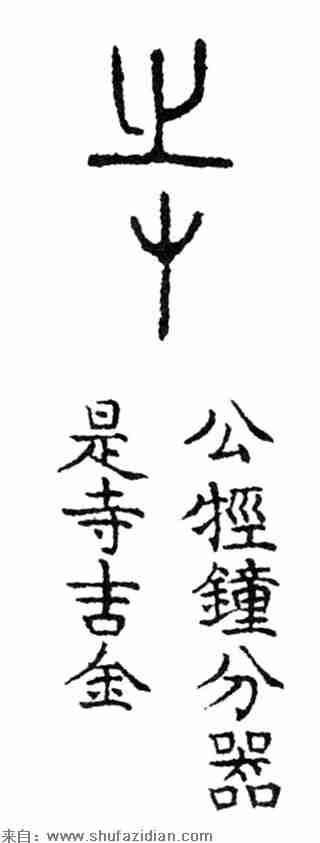 寺
公牼鐘分器
是寺吉金
来自：www.shufazidian.com